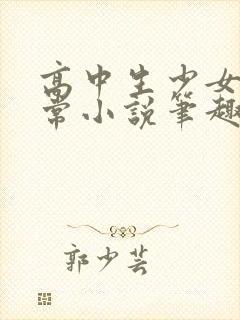 高中生少女
常小說筆趣
郭少芸